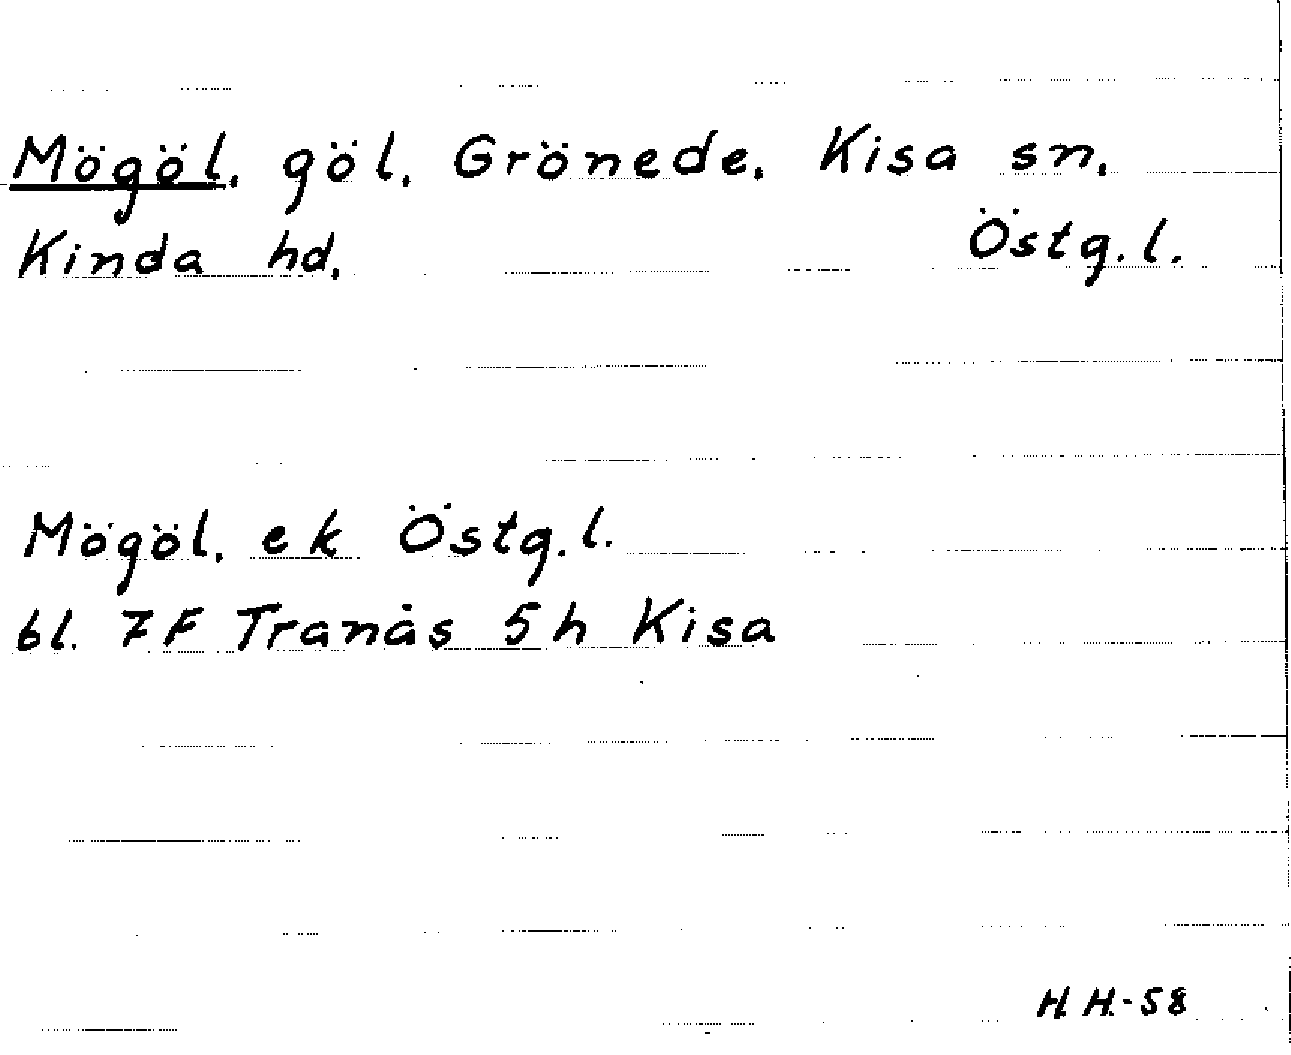 Mögöl, göl, Grönede, Kisa sn,
Kinda hd, Östg. l.
Mögöl, ek Östg. l.
bl. 7F Tranås 5h Kisa
H H.-58